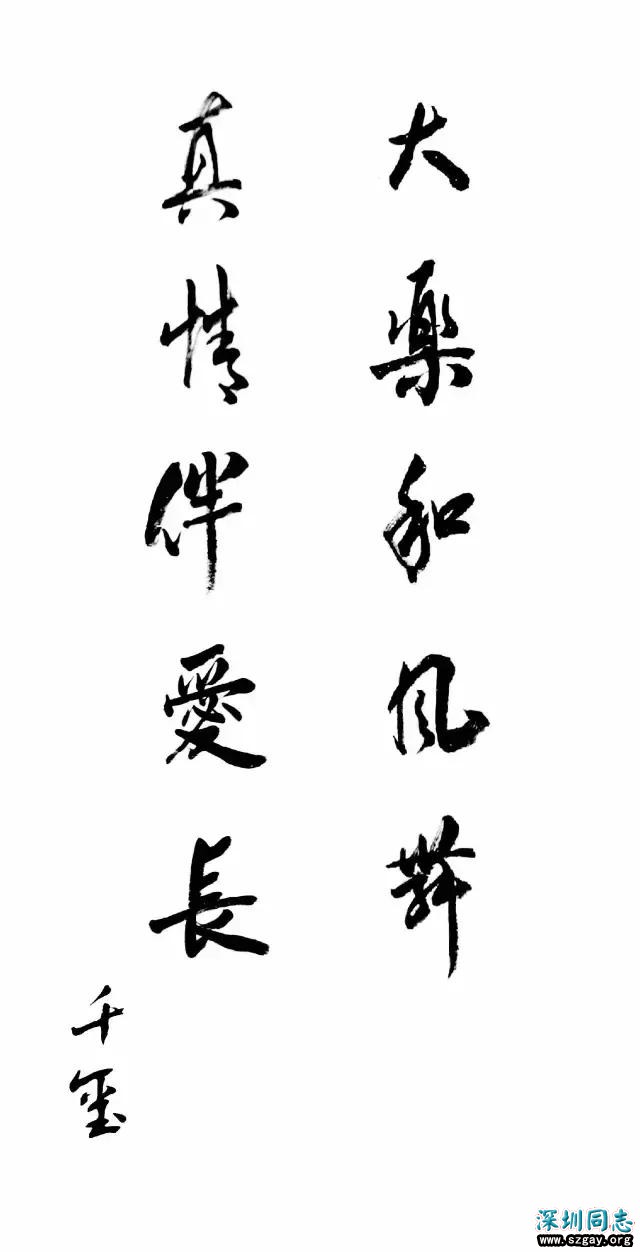 大樂和風舞
真情伴愛長
千璽
深圳同志
www.szgay.org